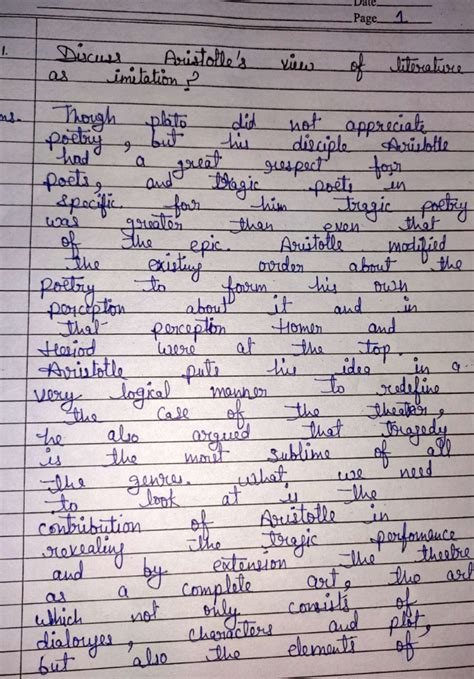 Date
Page 1
1. Discuss Aristotle's view of literature
as imitation?
Ans. Though plato did not appreciate
poetry, but his disciple Aristotle
had a great respect for
poets, and tragic poets in
specific for him tragic poetry
was greater than even that
of the epic. Aristotle modified
the existing order about the
poetry to form his own
perception about it and in
that perception Homer and
Hesiod were at the top.
Aristotle puts his idea in a
very logical manner to redefine
the case of the theater,
he also argued that tragedy
is the most sublime of all
the genres. What we need
to look at is the
contribution of Aristotle in
revealing the tragic performance
and by extension the theatre
as a complete art, the art
which not only consists of
dialouges, characters and plot,
but also the elements of